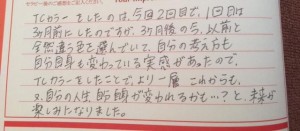 TCカラーをしたのは、今回2回目で、1回目は
3か月前にしたのですが、3か月後の今、以前と
全然違う色を選んでいて、自分の考え方も
自分自身も変わっている実感があったので、
TCカラーをしたことで、より一層 これからも
自分の人生 自身が変われるかも…?と、未来が
楽しみになりました。